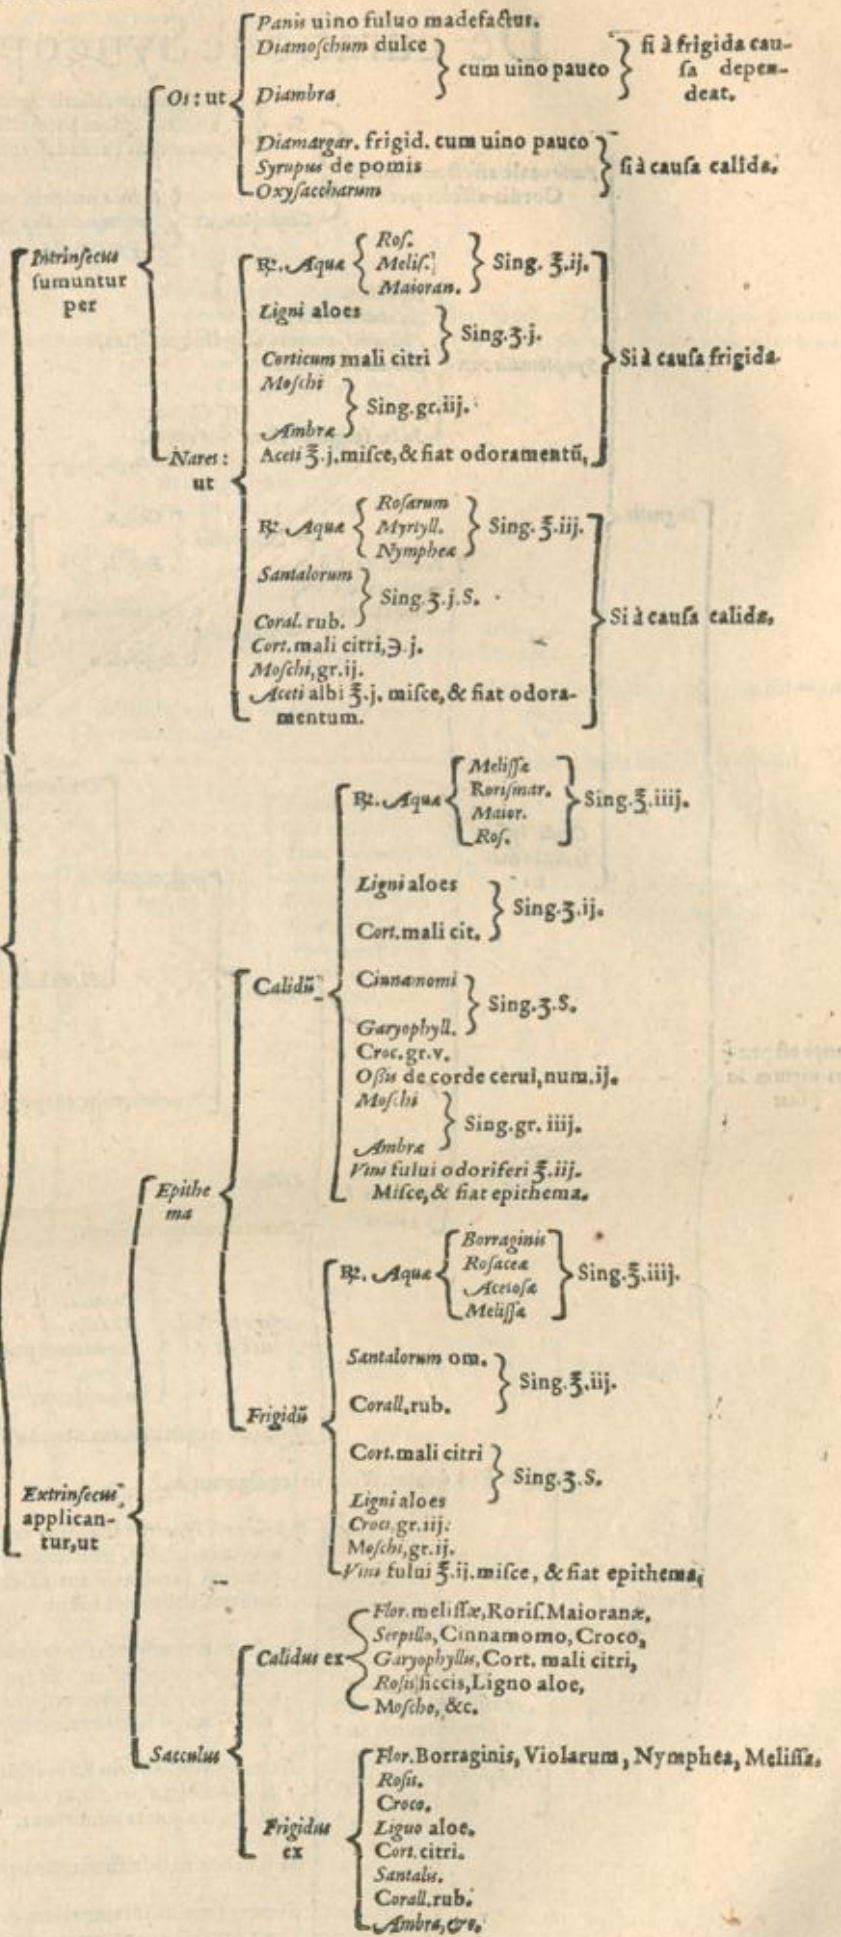 Panis uino fuluo madefactus.
Diamoſchum dulce
cum uino pauco
Diambra
ſi à frigida cau-
ſa depen-
deat.
Os: ut
Diamargar. frigid. cum uino pauco
Syrupus de pomis
Oxyſaccharum
ſi à cauſa calida.
Intrinſecus
ſumuntur
per
℞. Aquæ
Roſ.
Meliſ.
Maioran.
Sing. ℥.ij.
Ligni aloes
Corticum mali citri
Sing.ʒ.j.
Moſchi
Ambræ
Sing.gr.iij.
Aceti ℥.j.miſce,& fiat odoramentũ,
Si à cauſa frigida.
Nares:
ut
℞. Aquæ
Roſarum
Myrtyll.
Nympheæ
Sing. ℥.iij.
Santalorum
Coral. rub.
Sing.ʒ.j.S.
Cort. mali citri,℈.j.
Moſchi,gr.ij.
Aceti albi ℥.j. miſce,& fiat odora-
mentum.
Si à cauſa calida.
℞. Aquæ
Meliſſæ
Roriſmar.
Maior.
Roſ.
Sing.℥.iiij.
Ligni aloes
Cort.mali cit.
Sing.ʒ.ij.
Calidũ
Cinnamomi
Garyophyll.
Sing.ʒ.S.
Croc.gr.v.
Oſſis de corde cerui,num.ij.
Moſchi
Ambræ
Sing.gr. iiij.
Vini fului odoriferi ℥.iij.
Miſce,& fiat epithema.
Epithe
ma
℞. Aquæ
Borraginis
Roſaceæ
Acetoſæ
Meliſſæ
Sing.℥.iiij.
Santalorum om.
Corall.rub.
Sing.℥.iij.
Frigidũ
Cort.mali citri
Ligni aloes
Sing.ʒ.S.
Croci,gr.iij.
Moſchi,gr.ij.
Vini fului ℥.ij.miſce, & fiat epithema,
Extrinſecus
applican-
tur,ut
Calidus ex
Flor.meliſſæ,Roriſ.Maioranæ,
Serpillo,Cinnamomo,Croco,
Garyophyllis,Cort. mali citri,
Roſis ſiccis,Ligno aloe,
Moſcho, &c.
Sacculus
Frigidus
ex
Flor.Borraginis, Violarum, Nymphea, Meliſſa.
Roſis.
Croco.
Ligno aloe.
Cort.citri.
Santalis.
Corall.rub.
Ambra, &c.